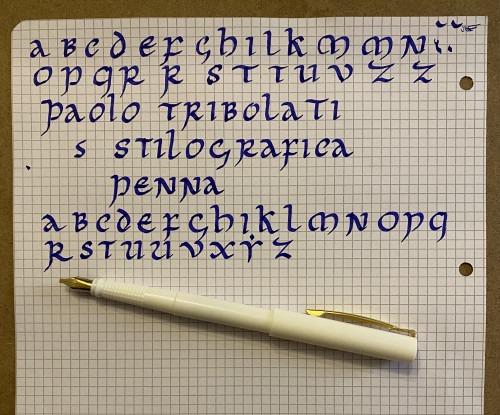 a b c d e f g h i l k m m n
o p q r r s t t u v z z
paolo tribolati
s stilografica
penna
a b c d e f g h i k l m n o p q
r s t u u v x ÿ z